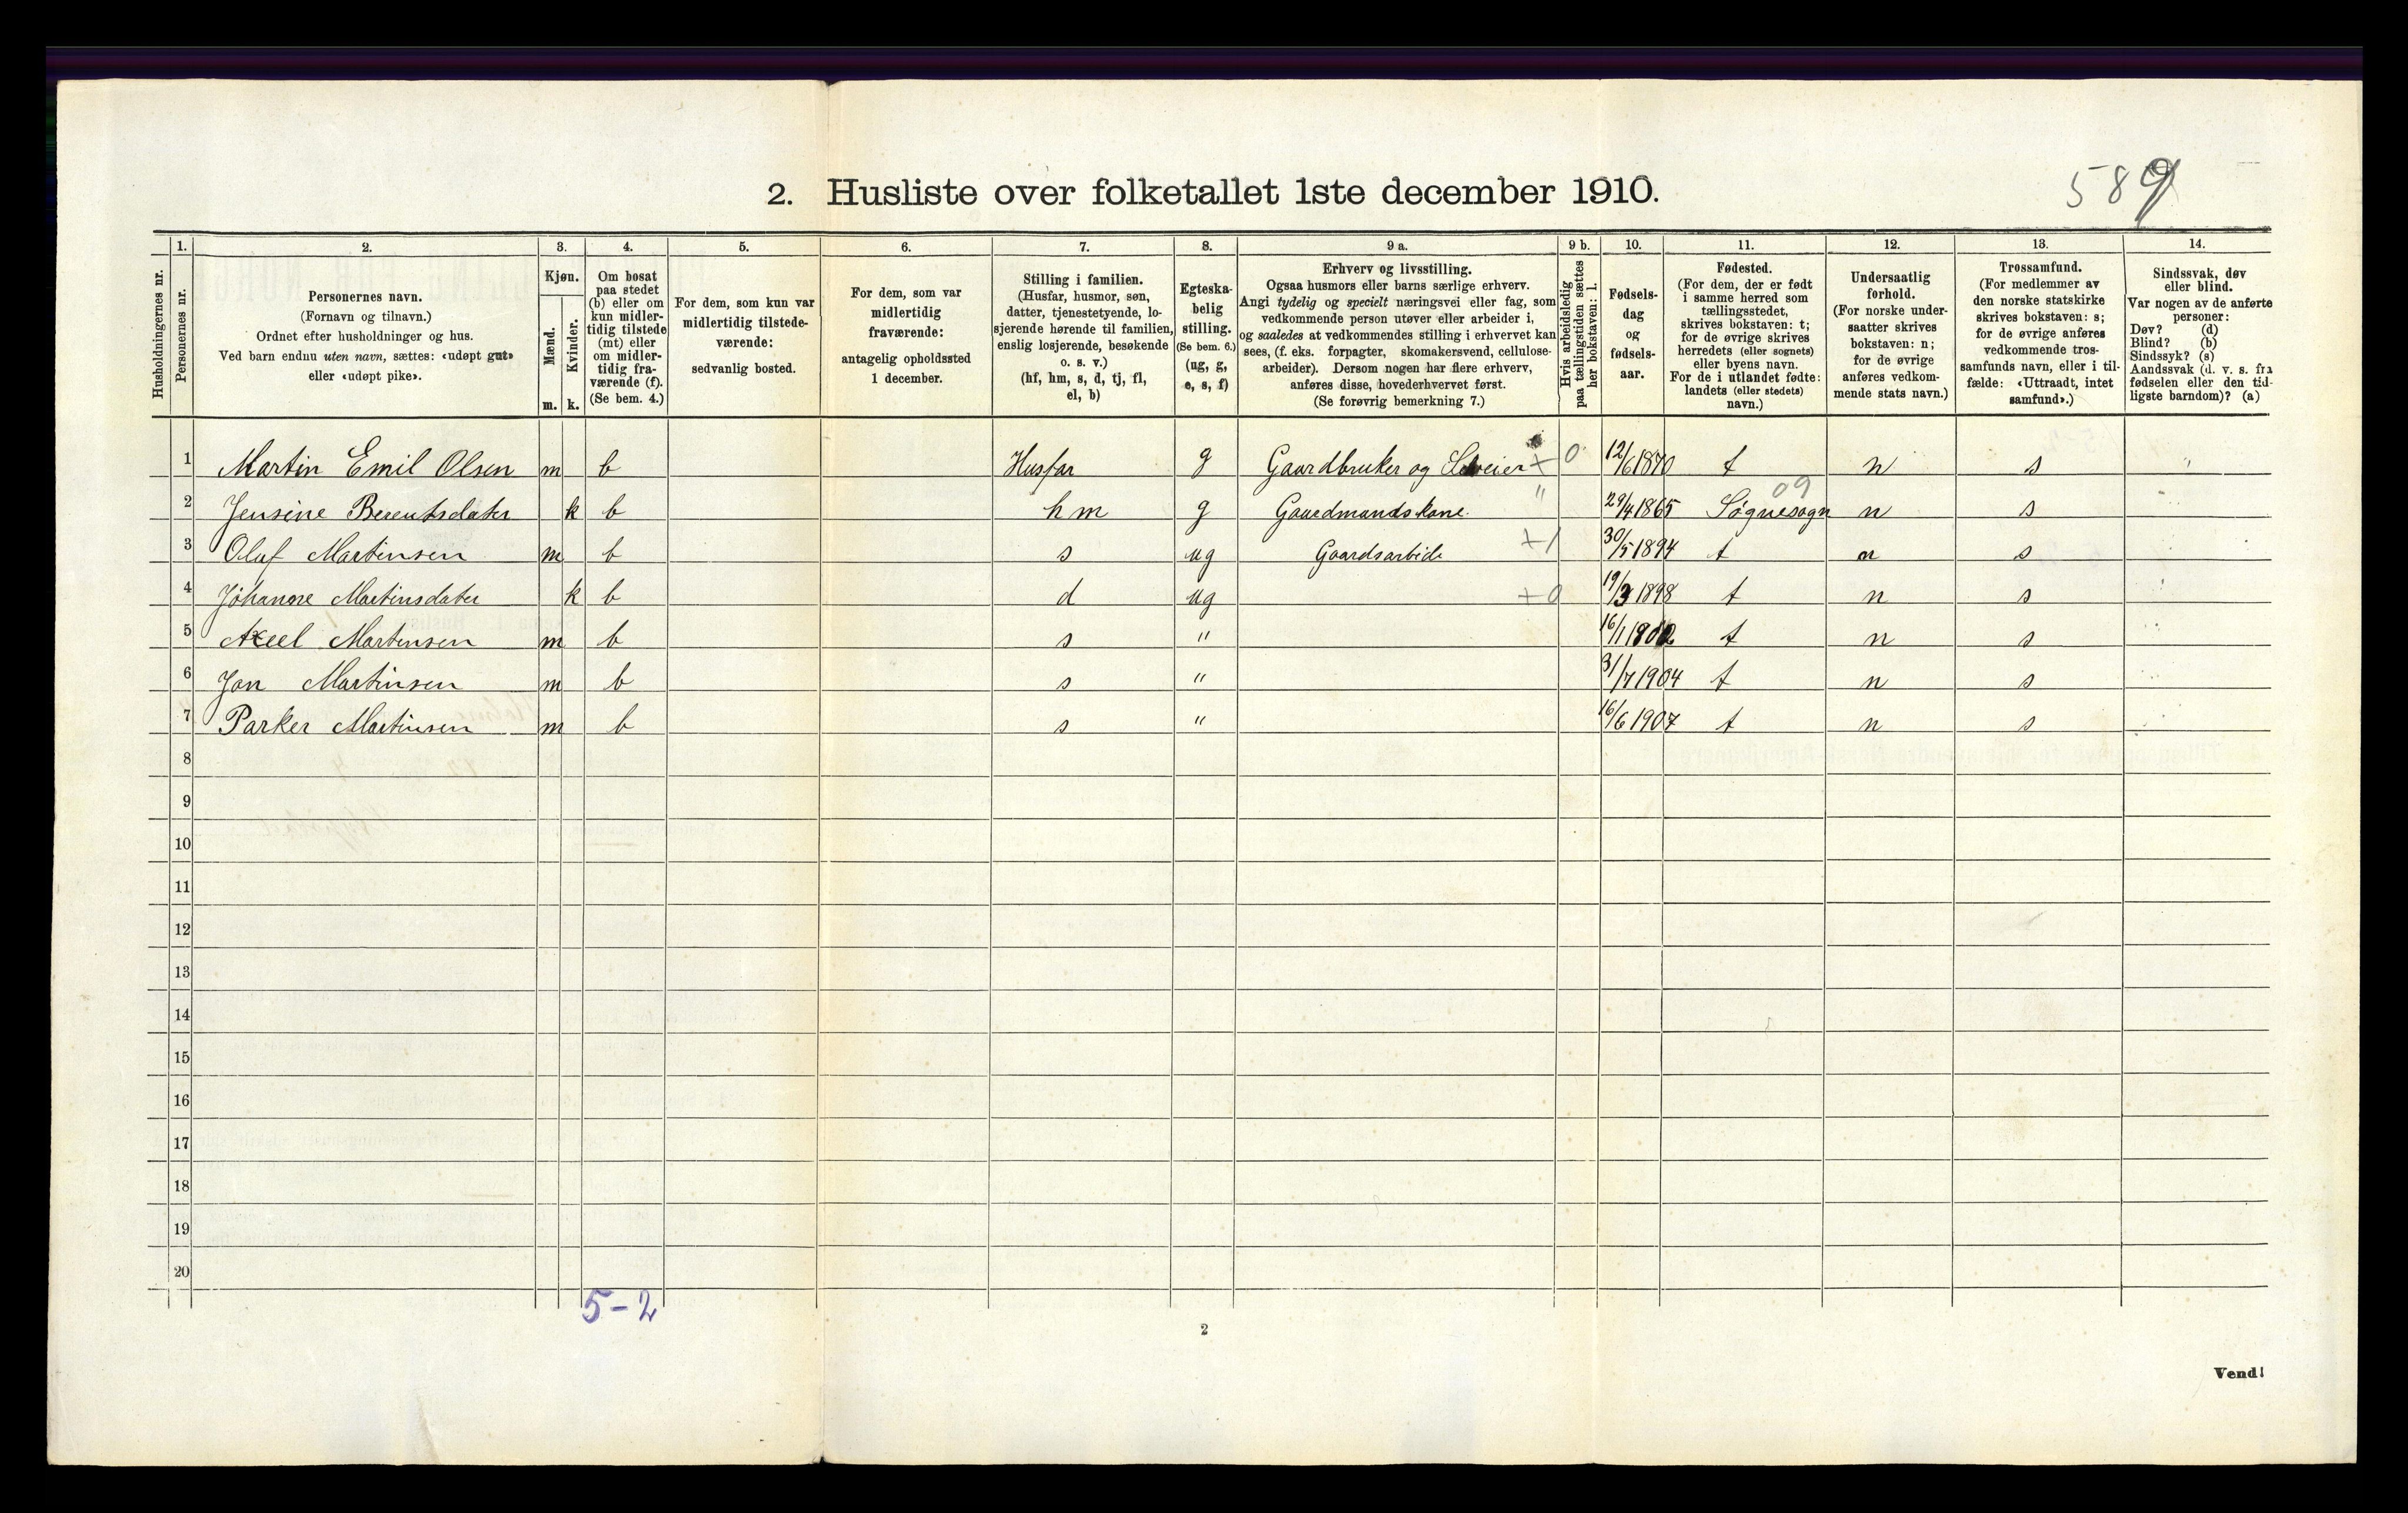 589
2. Husliste over folketallet 1ste december 1910.
Husholdningernes nr.
1. Personernes nr.
2. Personernes navn.
(Fornavn og tilnavn.)
Ordnet efter husholdninger og hus.
Ved barn endnu uten navn, sættes: «udøpt gut»
eller «udøpt pike».
3. Kjøn.
Mænd. m.
Kvinder. k.
4. Om bosat
paa stedet
(b) eller om
kun midler-
tidig tilstede
(mt) eller
om midler-
tidig fra-
værende (f).
(Se bem. 4.)
5. For dem, som kun var
midlertidig tilstede-
værende:
sedvanlig bosted.
6. For dem, som var
midlertidig
fraværende:
antagelig opholdssted
1 december.
7. Stilling i familien.
(Husfar, husmor, søn,
datter, tjenestetyende, lo-
sjerende hørende til familien,
enslig losjerende, besøkende
o. s. v.)
(hf, hm, s, d, tj, fl,
el, b)
8. Egteska-
belig
stilling.
(Se bem. 6.)
(ug, g,
e, s, f)
9 a. Erhverv og livsstilling.
Ogsaa husmors eller barns særlige erhverv.
Angi tydelig og specielt næringsvei eller fag, som
vedkommende person utøver eller arbeider i,
og saaledes at vedkommendes stilling i erhvervet kan
sees, (f. eks. forpagter, skomakersvend, cellulose-
arbeider). Dersom nogen har flere erhverv,
anføres disse, hovederhvervet først.
(Se forøvrig bemerkning 7.)
9 b. Hvis arbeidsledig
paa tællingstiden sættes
her bokstaven: l.
10. Fødsels-
dag
og
fødsels-
aar.
11. Fødested.
(For dem, der er født
i samme herred som
tællingsstedet,
skrives bokstaven: t;
for de øvrige skrives
herredets (eller sognets)
eller byens navn.
For de i utlandet fødte:
landets (eller stedets)
navn.)
12. Undersaatlig
forhold.
(For norske under-
saatter skrives
bokstaven: n;
for de øvrige
anføres vedkom-
mende stats navn.)
13. Trossamfund.
(For medlemmer av
den norske statskirke
skrives bokstaven: s;
for de øvrige anføres
vedkommende tros-
samfunds navn, eller i til-
fælde: «Uttraadt, intet
samfund».)
14. Sindssvak, døv
eller blind.
Var nogen av de anførte
personer:
Døv? (d)
Blind? (b)
Sindssyk? (s)
Aandssvak (d. v. s. fra
fødselen eller den tid-
ligste barndom)? (a)
1 Martin Emil Olsen m b Husfar g Gaardbruker og Selveier + 0 12/6 1870 t n s
2 Jensine Berentsdater k b hm g Gaardmandskone " 29/4 1865 Søgnesogn 09 n s
3 Olaf Martinsen m b s ug Gaardsarbide +1 30/5 1894 t n s
4 Johanne Martinsdater k b d ug +0 19/3 1898 t n s
5 Axel Martensen m b s " 16/1 1902 t n s
6 Jon Martinsen m b s " 31/7 1904 t n s
7 Parker Martinsen m b s " 16/6 1907 t n s
8
9
10
11
12
13
14
15
16
17
18
19
20
5-2
2
Vend!